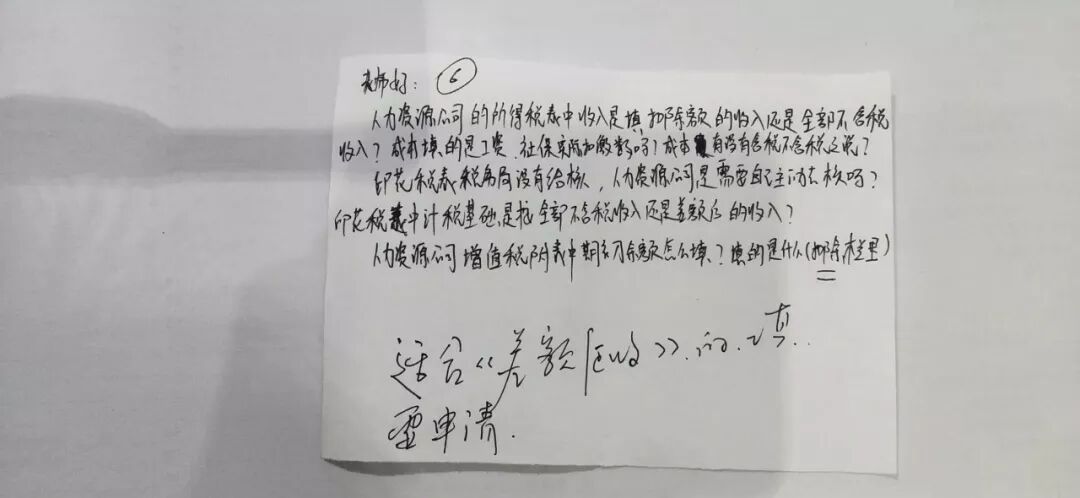 老师好： 6
人力资源公司的所得税表中收入是填扣除额的收入还是全部不含税
收入？成本填的是工资、社保实际扣缴数吗？成本有没有含税不含税之说？
印花税表税务局没有给核，人力资源公司是需要自己主动去核吗？
印花税表中计税基础是按全部不含税收入还是差额后的收入？
人力资源公司增值税附表中期初余额怎么填？填的是什么(扣除栏里)
适合《差额 》的填
需申请.